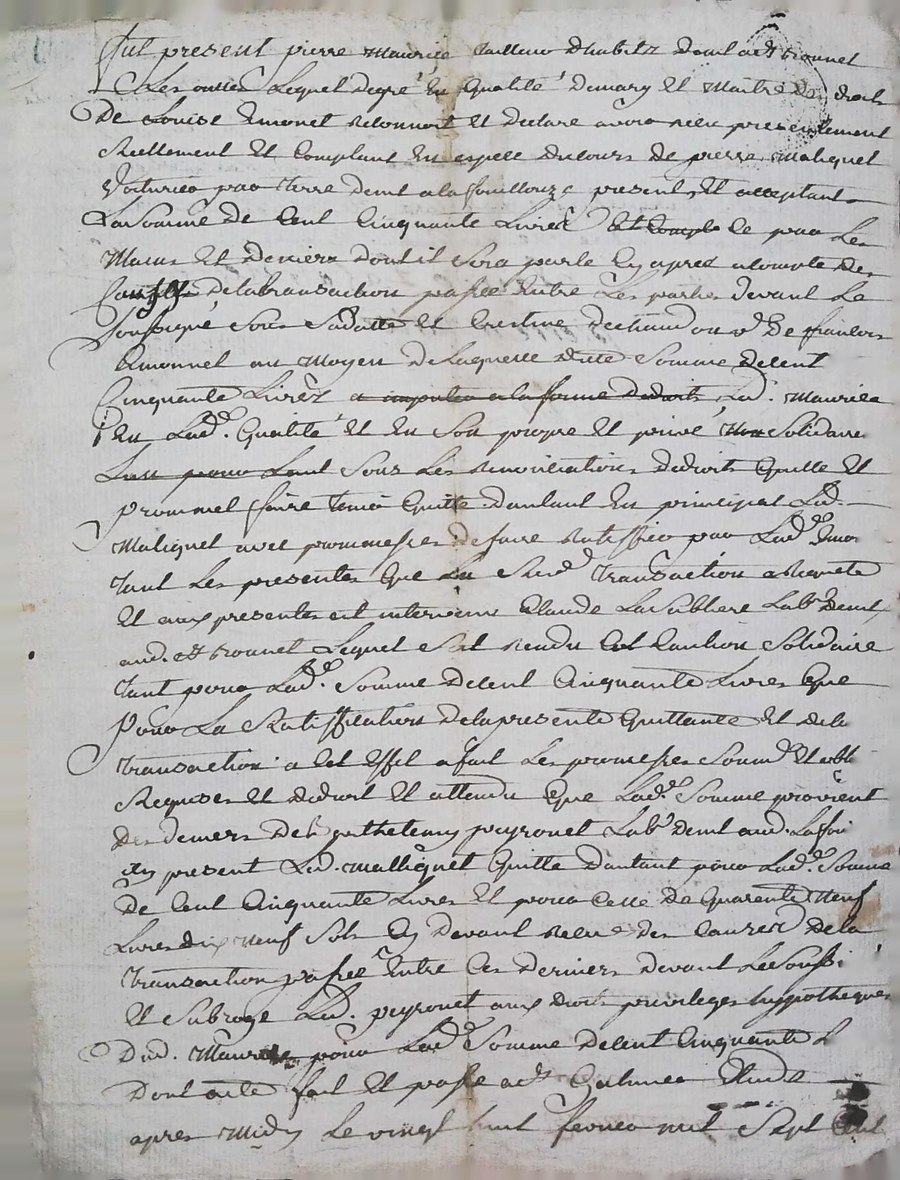 fut present pierre Maurice tailleur d'habits demt a St bonnet
Les oulles Lequel degré En Qualité de mary et Maitre des droits
De Louise Emonet Reconnoit et declare avoir receu presentement
Reellement et Comptant En espece du cours de pierre Maliquet
Voiturier par terre demt a la fouillouze present et acceptant
La somme de Cent Cinquante Livres et ce pour Les
Causes et deniers dont il sera parlé Cy apres a compte des
de la transaction passee Entre Les parties devant Le
soussigné sous sa datte et de
Emonnet au Moyen de Laquelle ditte somme de Cent
Cinquante Livres a imputer a la forme du droit Led. Maurice
En Lad. Qualité et En son propre et privé solidaire
L'un pour L'aut sous Les Renonciations de droit Quitte et
promet faire tenir Quitte d'autant En principal Led.
Maliquet avec promesses de faire Ratiffier par Lad. Emo
tant Les presentes que La Susd. transaction a Requete
Et aux presentes est intervenu Claude La Sabliere Lab. demt
aud. St bonnet Lequel s'est rendu Caution Solidaire
tant pour Lad. somme de Cent Cinquante Livres que
Pour La Ratiffication de la presente Quittance et de la
transaction a Cet effet a fait Les promesses soum. et obli
Requises et de droit et attendu que Lad. somme provient
des deniers de barthelemy peyronet Lab. demt aud. La foui
icy present Led. Malliquet Quitte d'autant pour Lad. somme
De Cent Cinquante Livres et pour Celle de Quarente Neuf
Livres dix Neuf sols Cy devant Receue des Causes de la
transaction passee Entre Ces derniers devant Le soussi
Et subroge Led. peyronet aux droits privileges hyppotheques
Dud. Maurice pour Lad. somme de Cent Cinquante L
Dont acte fait et passé a St Galmier Etude
apres Midy Le vingt huit fevrier mil sept Cent